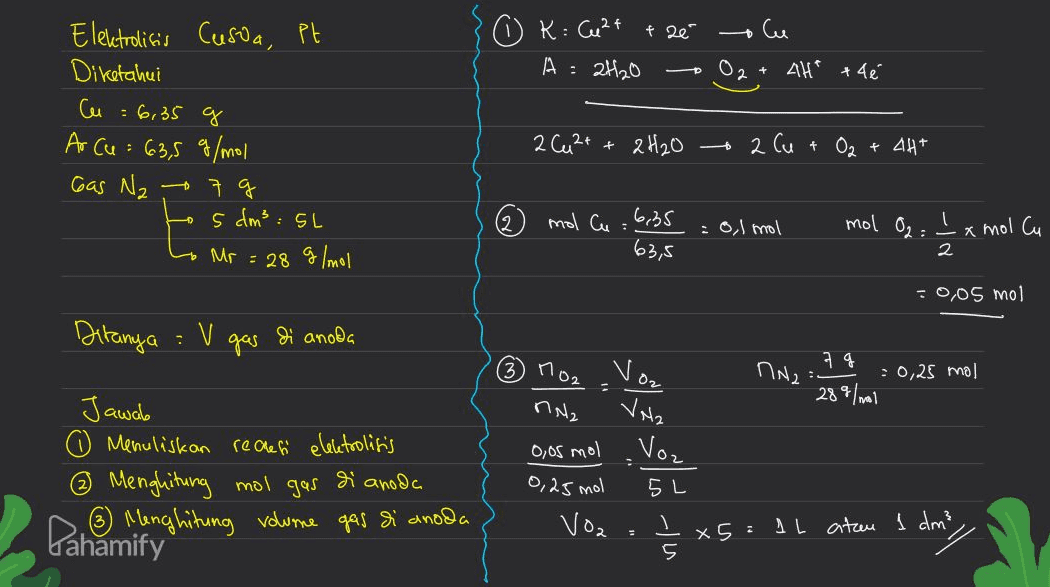 Elektrolisis CuSO4, Pt
Diketahui
Cu = 6,35 g
Ar Cu = 63,5 g/mol
Gas N2 → 7 g
→ 5 dm³ = 5 L
→ Mr = 28 g/mol
Ditanya = V gas di anoda
Jawab
① Menuliskan reaksi elektrolisis
② Menghitung mol gas di anoda
③ Menghitung volume gas di anoda
Pahamify
① K : Cu²⁺ + 2e⁻ → Cu
A : 2H2O → O2 + 4H⁺ + 4e⁻
2 Cu²⁺ + 2H2O → 2 Cu + O2 + 4H⁺
② mol Cu = 6,35 / 63,5 = 0,1 mol
mol O2 = 1/2 x mol Cu
= 0,05 mol
③ nO2 / nN2 = VO2 / VN2
nN2 = 7 g / 28 g/mol = 0,25 mol
0,05 mol / 0,25 mol = VO2 / 5 L
VO2 = 1/5 x 5 = 1 L atau 1 dm³